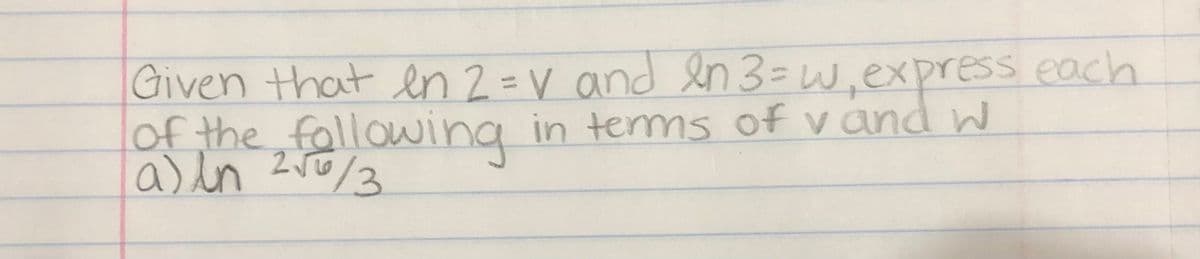 Given that ln 2 = v and ln 3 = w, express each
of the following in terms of v and w
a) ln 2√6/3